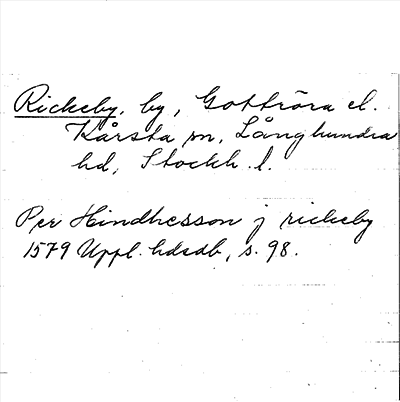 Rickeby, by, Gottröra el.
Kårsta sn, Långhundra
hd, Stockh. l.
Per Hindhesson j rickeby
1579 Uppl. hdsdb, s. 98.